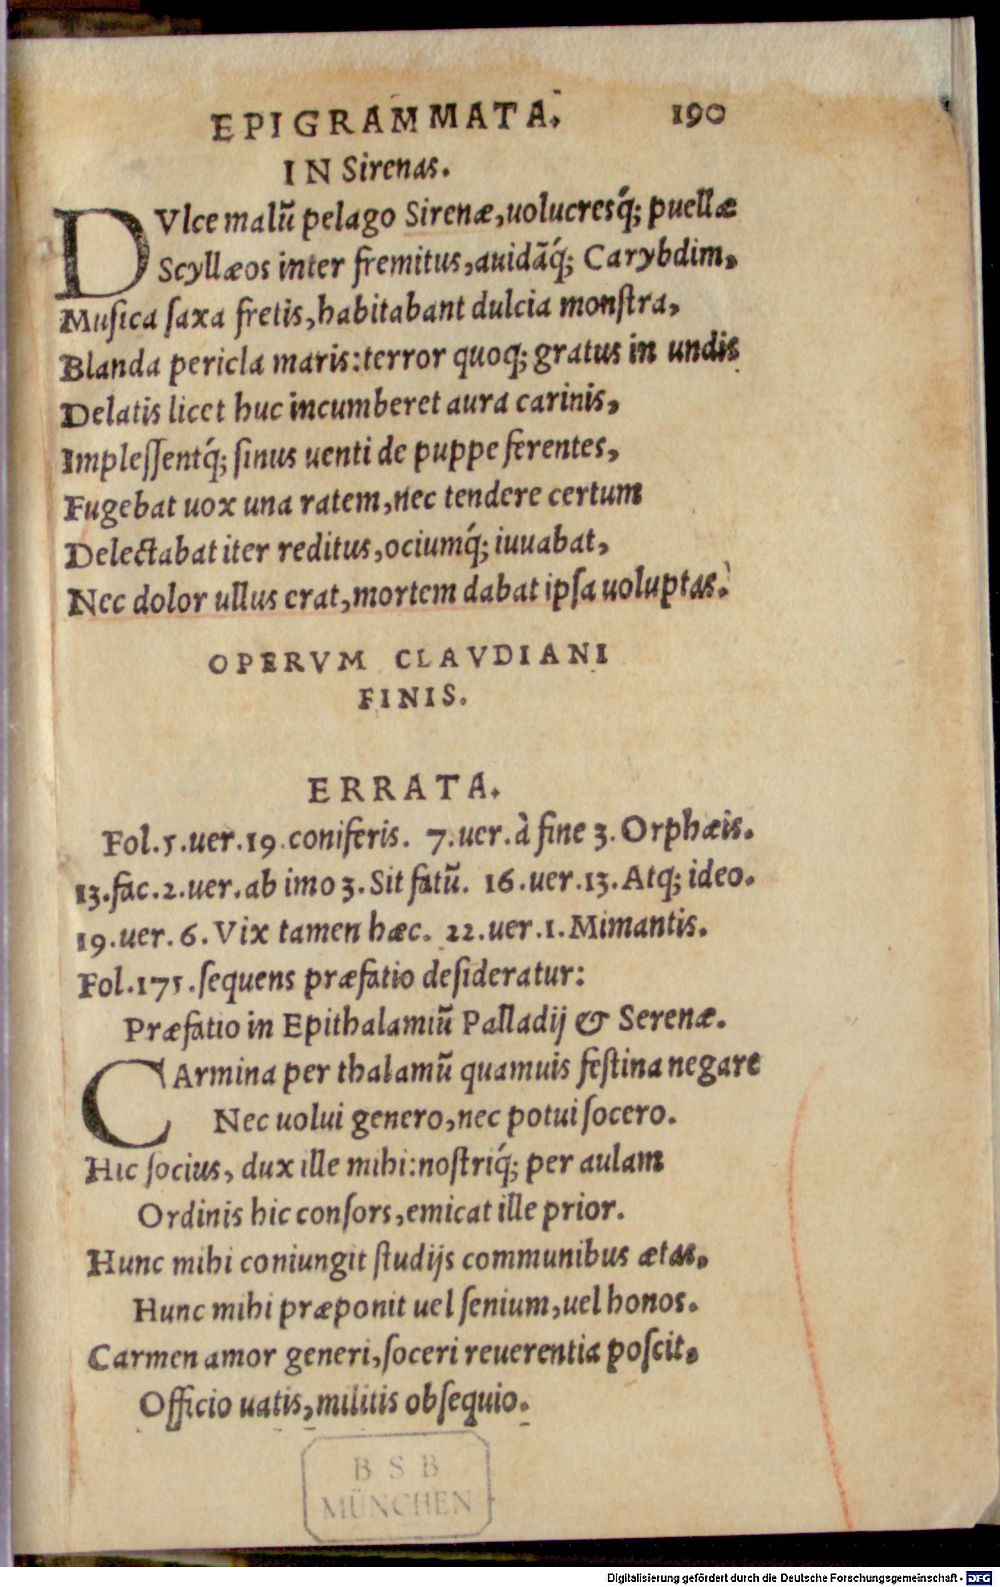 EPIGRAMMATA. 190
IN Sirenas.
DVlce malũ pelago Sirenæ,uolucresq́; puellæ
Scyllæos inter fremitus,auidãq́; Carybdim,
Musica saxa fretis,habitabant dulcia monstra,
Blanda pericla maris:terror quoq; gratus in undis
Delatis licet huc incumberet aura carinis,
Implessentq́; sinus uenti de puppe ferentes,
Fugebat uox una ratem,nec tendere certum
Delectabat iter reditus,ociumq́; iuuabat,
Nec dolor ullus erat,mortem dabat ipsa uoluptas.
OPERVM CLAVDIANI
FINIS.
ERRATA.
Fol.5.uer.19.coniferis. 7.uer.à fine 3.Orphæis.
13.fac.2.uer.ab imo 3.Sit fatũ. 16.uer.13.Atq; ideo.
19.uer.6.Vix tamen hæc. 22.uer.1.Mimantis.
Fol.175.sequens præfatio desideratur:
Præfatio in Epithalamiũ Palladij & Serenæ.
CArmina per thalamũ quamuis festina negare
Nec uolui genero,nec potui socero.
Hic socius, dux ille mihi:nostriq́; per aulam
Ordinis hic consors,emicat ille prior.
Hunc mihi coniungit studijs communibus ætas,
Hunc mihi præponit uel senium,uel honos.
Carmen amor generi,soceri reuerentia poscit,
Officio uatis,militis obsequio.
BSB
MÜNCHEN
Digitalisierung gefördert durch die Deutsche Forschungsgemeinschaft - DFG